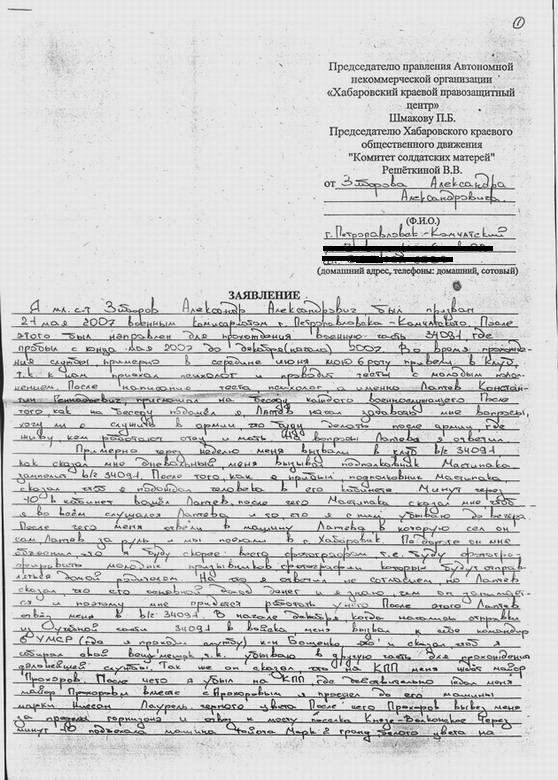 1
Председателю правления Автономной
некоммерческой организации
«Хабаровский краевой правозащитный
центр»
Шмакову П.Б.
Председателю Хабаровского краевого
общественного движения
"Комитет солдатских матерей"
Решёткиной В.В.
от Зиборова Александра
Александровича.
(Ф.И.О.)
г. Петропавловск-Камчатский
(домашний адрес, телефоны: домашний, сотовый)
ЗАЯВЛЕНИЕ
Я мл. с-т Зиборов Александр Александрович был призван
21 мая 2007 военным комисариатом г. Петропавловска-Камчатского. После
этого был направлен для прохождения в военную часть 34091 где
пробыл с конца мая 2007 до декабря (начала) 2007 Во время прохожде-
ния службы, примерно в середине июня мою 6 роту привели в клуб,
т.к. к нам приехал психолог и проводил тесты с молодым попол-
нением. После написание теста психолог а именно Лаптев Констан-
тин Геннадьевич, приглашал на беседу каждого военнослужащего После
того как на беседу подошёл я, Лаптев начал задавать мне вопросы,
хочу ли я служить в армии что буду делать после армии, где
живу, кем работают отец и мать. На вопросы Лаптева я ответил.
Примерно через неделю меня вызвали в клуб в/ч 34091
как сказал мне дневальный меня вызывал подполковник Мастипака
замполит в/ч 34091. После того, как я прибыл, подполковник Мастипака
сказал чтоб я подождал человека в его кабинете Минут через
10 в кабинет вошёл Лаптев, после чего Мастипака сказал мне чтоб
я во всём слушался Лаптева, и то что я с ним убываю до вечера.
После чего меня отвели в машину Лаптева в которую сел он
сам Лаптев за руль и мы поехали в г. Хабаровск. По дороге он мне
объяснил, что я буду скорее всего фотографом т.е. буду фотогра-
фировать молодых призывников фотографии которых будут отправ-
ляться домой родителям. На что я ответил не согласием, но Лаптев
сказал что его основной доход денег и я знаю, чем он занимает-
ся и поэтому мне придётся работать у него После этого Лаптев
отвёз меня в в/ч 34091. В начале декабря когда начались отправки
из Учебной части 34091 в войска меня вызвал к себе командир
6 УМСР (где я проходил службу) к-н Бащенко что и сказал чтоб я
собирал свой вещь мешок т.к. убываю в другую часть для прохождения
дальнейшей службы. Так же он сказал что на КПП меня ждёт майор
Прохоров. После чего я убыл на КПП где действительно ждал меня
майор Прохоров вместе с Прохоровым я проехал до его машины
марки Ниссан Лаурель чёрного цвета После чего Прохоров вывез меня
за пределы гарнизона и отвёз к мосту посёлка Князе-Волконское Через
минут 10 подъехала машина Тойота Марк 2 гранд белого цвета на